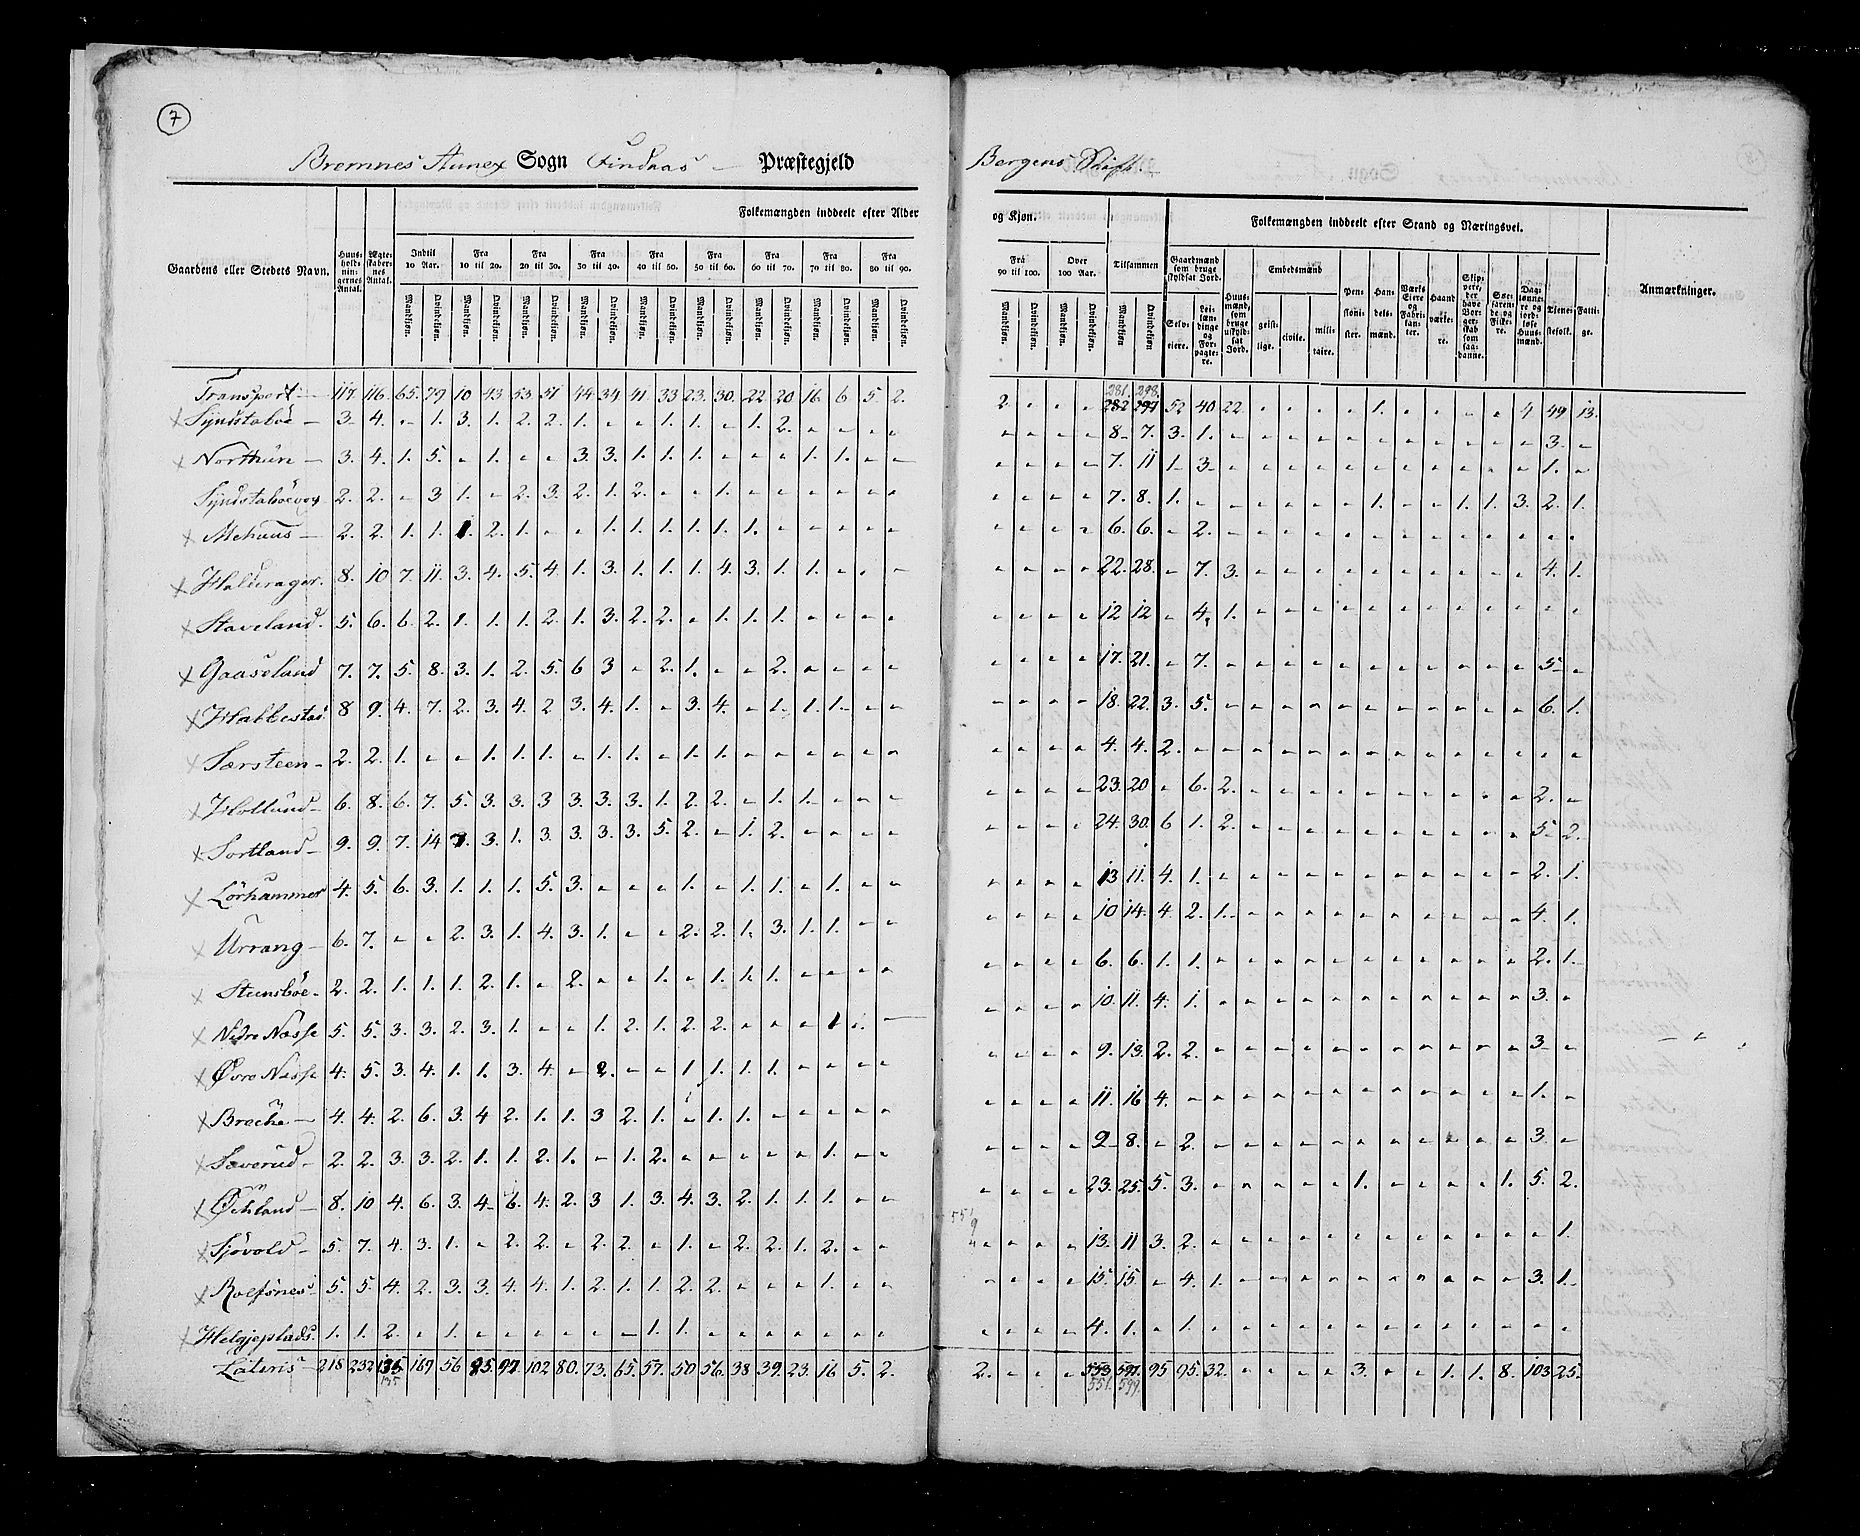 7
Bremnes Annex Sogn Findaas Præstegjeld Bergens Stift.
Folkemængden inddeelt efter Alder og Kjøn. Folkemængden inddeelt efter Stand og Næringsvei.
Gaardens eller Stedets Navn. Huusholdningernes Antal. Ægteskabernes Antal. Indtil 10 Aar. Fra 10 til 20. Fra 20 til 30. Fra 30 til 40. Fra 40 til 50. Fra 50 til 60. Fra 60 til 70. Fra 70 til 80. Fra 80 til 90. Fra 90 til 100. Over 100 Aar. Tilsammen Gaardmænd som bruge skyldsat Jord. Huusmænd, som bruge uskyldsat Jord. Embedsmænd Pensionister. Handelsmænd. Værks Eiere og Fabrikanter. Haandværkere. Skippere, der have Borgerskab som saadanne. Søefarende og Fiskere. Dagllønnere og jordløse Huusmænd. Tjenestefolk. Fattige. Anmærkninger.
Mandkjøn. Qvindekjøn. Mandkjøn. Qvindekjøn. Mandkjøn. Qvindekjøn. Mandkjøn. Qvindekjøn. Mandkjøn. Qvindekjøn. Mandkjøn. Qvindekjøn. Mandkjøn. Qvindekjøn. Mandkjøn. Qvindekjøn. Mandkjøn. Qvindekjøn. Mandkjøn. Qvindekjøn. Mandkjøn. Qvindekjøn. Mandkjøn Qvindekjøn Selveiere. Leilændinge og Forpagtere. geistlige. civile. militaire.
281. 298.
Transport 117. 116. 65. 79 10 43 53. 51 44 34 41. 33 23. 30. 22 20 16. 6. 5. 2. 2. - - - 282 297 52 40 22 - - - - 1. - - - - 4 49 13.
x Syndstabøe 3. 4. - 1. 3. 1. 2. 2. 1. - - 1. 1. - 1. 2. - - - - - - - - 8. 7. 3. 1. - - - - - - - - - - - 3. -
x Northun 3. 4. 1. 5. - 1. - - 3. 3. 1. 1. 1. - - - 1. 1. - - - - - - 7. 11 1. 3. - - - - - - - - - - - 1. -
Syndstabøevog 2. 2. - 3 1. - 2. 3. 2. 1. 2. - - 1. - - - - - - - - - - 7. 8. 1. - - - - - - 1. - - 1. 1. 3. 2. 1.
x Mehuus 2. 2. 1. 1. 1. 2. 1. - - 1. 1. 1. 1. 1. 1. - - - - - - - - - 6. 6. - 2. - - - - - - - - - - - - -
x Halderager. 8. 10 7. 11. 3. 4. 5. 4. 1. 3. 1. 1. 1. 4. 3. 1. 1. - - - - - - - 22. 28. - 7. 3. - - - - - - - - - - 4. 1.
x Staveland. 5. 6. 6. 2. 1. 1. 1. 2. 1. 3. 2. 2. - 1. 1. 1. - - - - - - - - 12 12 - 4. 1. - - - - - - - - - - - -
x Gaaseland 7. 7. 5. 8. 3. 1. 2. 5. 6 3 - 2. 1. - - 2. - - - - - - - - 17. 21. - 7. - - - - - - - - - - - 5. -
x Habbestad 8 9. 4. 7. 2. 3. 4. 2 3. 4. 1. - 3. 4. - 1. 1. 1. - - - - - - 18. 22. 3. 5. - - - - - - - - - - - 6. 1.
x Særsteen 2. 2. 1. - - 1. 1. 1. - 1. 1. - 1. 1. - - - - - - - - - - 4. 4. 2. - - - - - - - - - - - - - -
x Hollund 6. 8. 6. 7. 5. 3. 3. 3 3. 3. 3. 1. 2. 2. - 1. 1. - - - - - - - 23. 20 - 6. 2. - - - - - - - - - - 2. -
x Sortland 9. 9. 7. 14 7. 3. 1. 3 3. 3. 3. 5. 2. - 1. 2. - - - - - - - - 24. 30. 6 1. 2. - - - - - - - - - - 5. 2.
x Lørhammer 4. 5. 6. 3. 1. 1. 1. 5. 3. - - - 1. - 1. 1. - 1. - - - - - - 13 11. 4. 1. - - - - - - - - - - - 2. 1.
x Urrang 6. 7. - - 2. 3. 1. 4. 3. 1. - - 2. 2. 1. 3. 1. 1. - - - - - - 10 14. 4. 2. 1. - - - - - - - - - - 4. 1.
x Steensbøe 2. 2. 1. 1. 1. 2. 1. - 2. - - 1. - 1. 1. 1. - - - - - - - - 6. 6. 1. 1. - - - - - - - - - - - 2. 1.
x Nedre Næsse 5. 5. 3. 3. 2. 3. 1. - - 1. 2. 1. 2. 2. - - - 1 - - - - - - 10. 11. 4. 1. - - - - - - - - - - - 3. -
x Øvre Næsse 4. 5. 3. 4. 1. 1. 3. 4. - 2. - - 1 1. 1. 1. - - - - - - - - 9. 13. 2. 2. - - - - - - - - - - - 3. -
x Breche 4. 4. 2. 6. 3. 4 2. 1. 1. 3 2. 1. - 1. 1. - - - - - - - - - 11. 16 4. - - - - - - - - - - - - 1. -
x Sæverud 2. 2. 3. 3. 2. 1. 1. 2. 1. - 1. 2. - - - - - 1. - - - - - - 9 8. - 2. - - - - - - - - - - - 3. -
x Øchland 8. 10 4. 6. 3. 4. 6. 4. 2. 3 1. 3. 4. 3. 2. 1. 1. 1. - - - - - - 23. 25. 5. 3. - - - - 1. - - - - 1. 5. 2.
x Sjøvold 5. 7. 4. 3. 1. - 2. 2. - 2. 2. - 1. - 2. 2. 1. 2. - - - - - - 13. 11 3. 2. - - - - - - - - - - - - 1.
x Rolfsnes 5. 5. 4. 2. 3. 3. 4 4. 1. 2. 1. 1. 2. 2. - - - 1. - - - - - - 15. 15. - 4. 1. - - - - - - - - - - 3. 1.
x Helgjeplads. 1. 1. 2. - 1. - - - - - - 1. 1. - - - - - - - - - - - 4. 1. - 1. - - - - - - - - - - - - -
Lateris 218 232 135 169 56 85 97. 102 80. 73. 65. 57. 50 56. 38. 39. 23. 16 5. 2. 2. - - - 553 597. 95 95. 32. - - - - 3. - - 1. 1. 8. 103 25.
135 551. 599